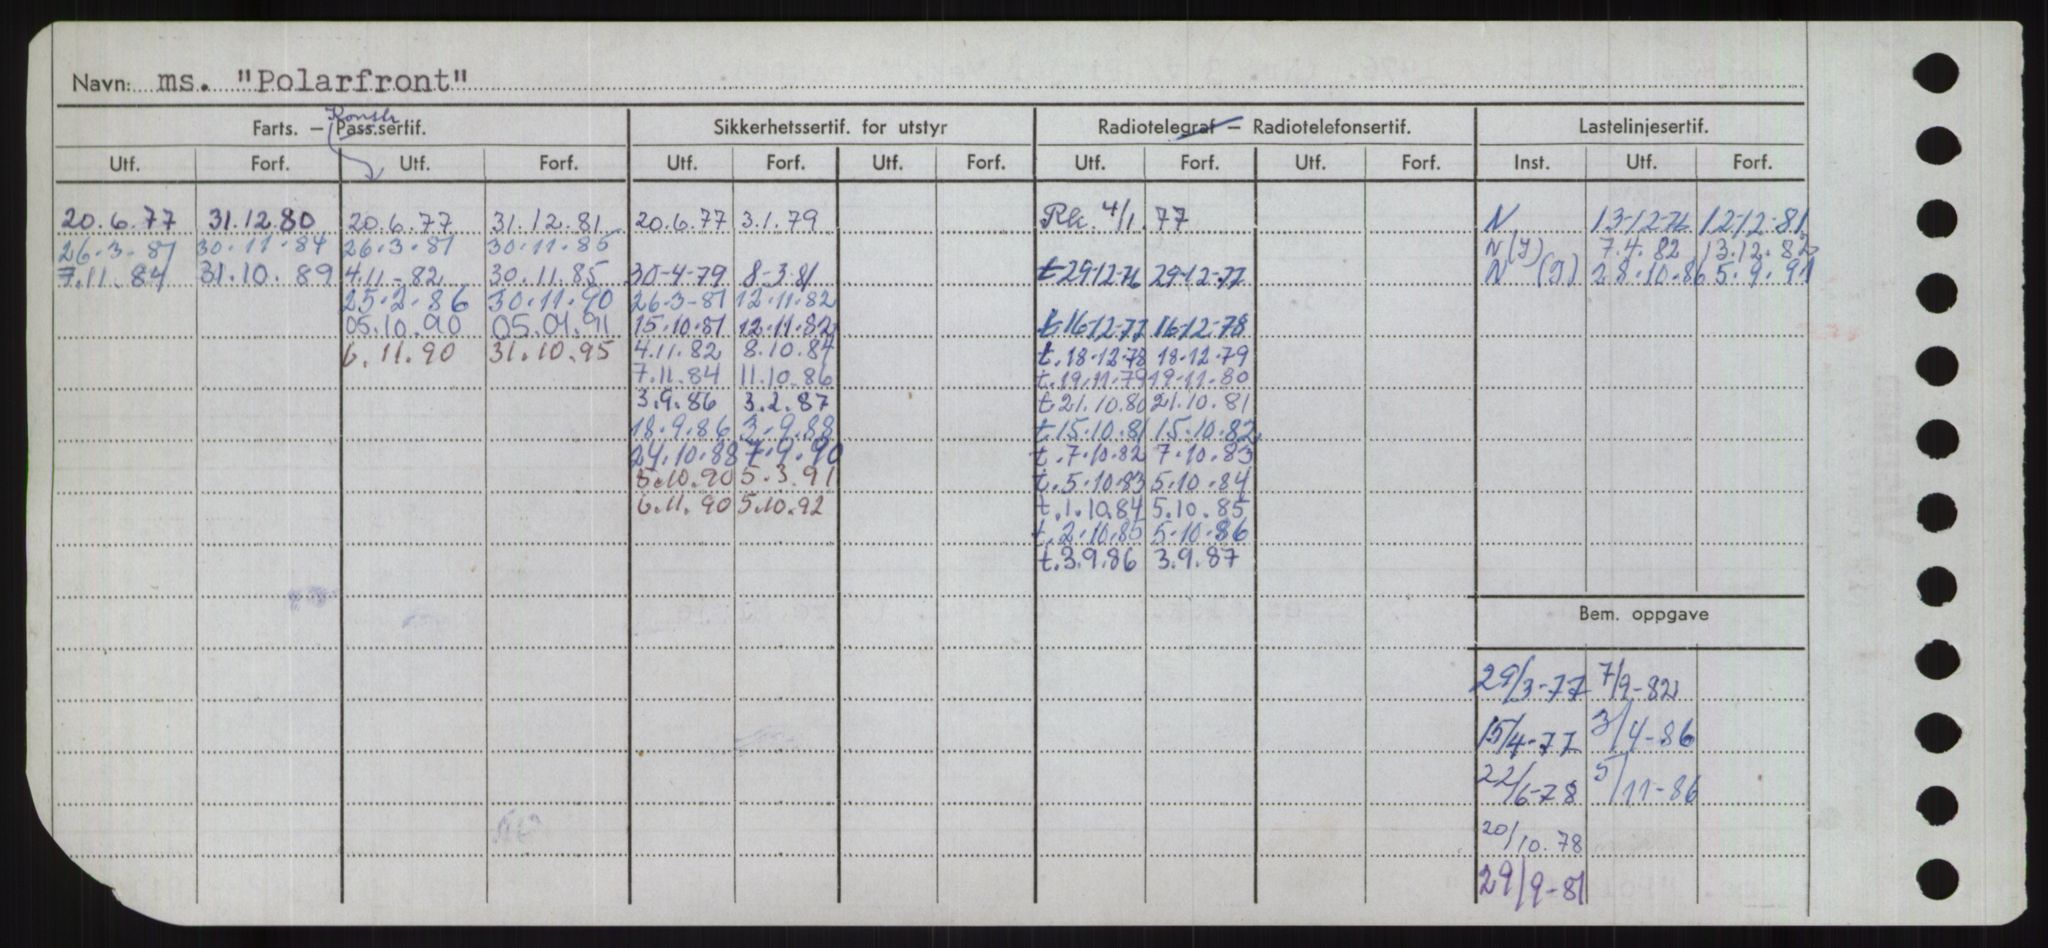 Navn: ms. "Polarfront"
Konstr
Farts. — Pass.sertif. Sikkerhetssertif. for utstyr Radiotelegraf — Radiotelefonsertif. Lastelinjesertif.
Utf. Forf. Utf. Forf. Utf. Forf. Utf. Forf. Utf. Forf. Utf. Forf. Inst. Utf. Forf.
20.6.77 31.12.80 20.6.77 31.12.81 20.6.77 3.1.79 4/1.77 N 13-12-76 12-12-81
26-3-81 30-11-84 26-3-81 30-11-85 N (I) 7.4.82 13.12.82
7.11.84 31.10.89 4.11-82 30.11.85 30-4-79 8-3-81 t-29-12-76 29-12-77 N (I) 28.10.86 5.9.91
25.2.86 30.11.90 26-3-81 12.11.82
05.10.90 05.01.91 15.10.81 12.11.82 t 16-12-77 16-12-78
6.11.90 31.10.95 4.11.82 8.10.84 t.18-12-78 18-12-79
7.11.84 11.10.86 t.19.11.79 19-11-80
3.9.86 3.2.87 t.21.10.80 21.10.81
18.9.86 3.9.88 t.15.10.81 15.10.82
24.10.88 7.9.90 t.7.10.82 7.10.83
5.10.90 5.3.91 t.5.10.83 5.10.84
6.11.90 5.10.92 t.1.10.84 5.10.85
t.2.10.85 5.10.86
t.3.9.86 3.9.87
Bem. oppgave
29/3-77 7/9-82
15/4-77 3/4-86
22/6-78 5/11-86
20/10.78
29/9-81